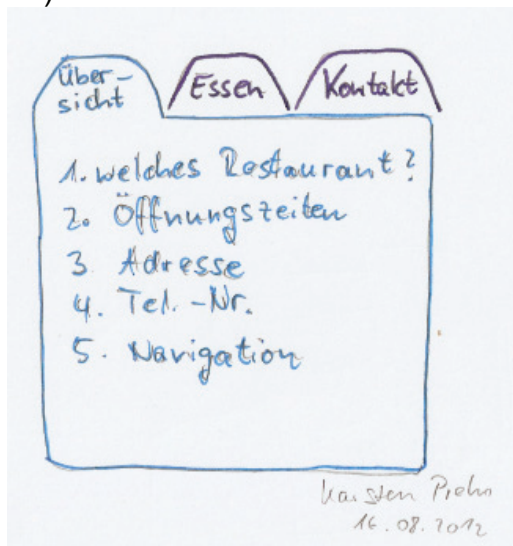 Über-
sicht
Essen
Kontakt
1. welches Restaurant?
2. Öffnungszeiten
3. Adresse
4. Tel.-Nr.
5. Navigation
Karsten
16.08.2012